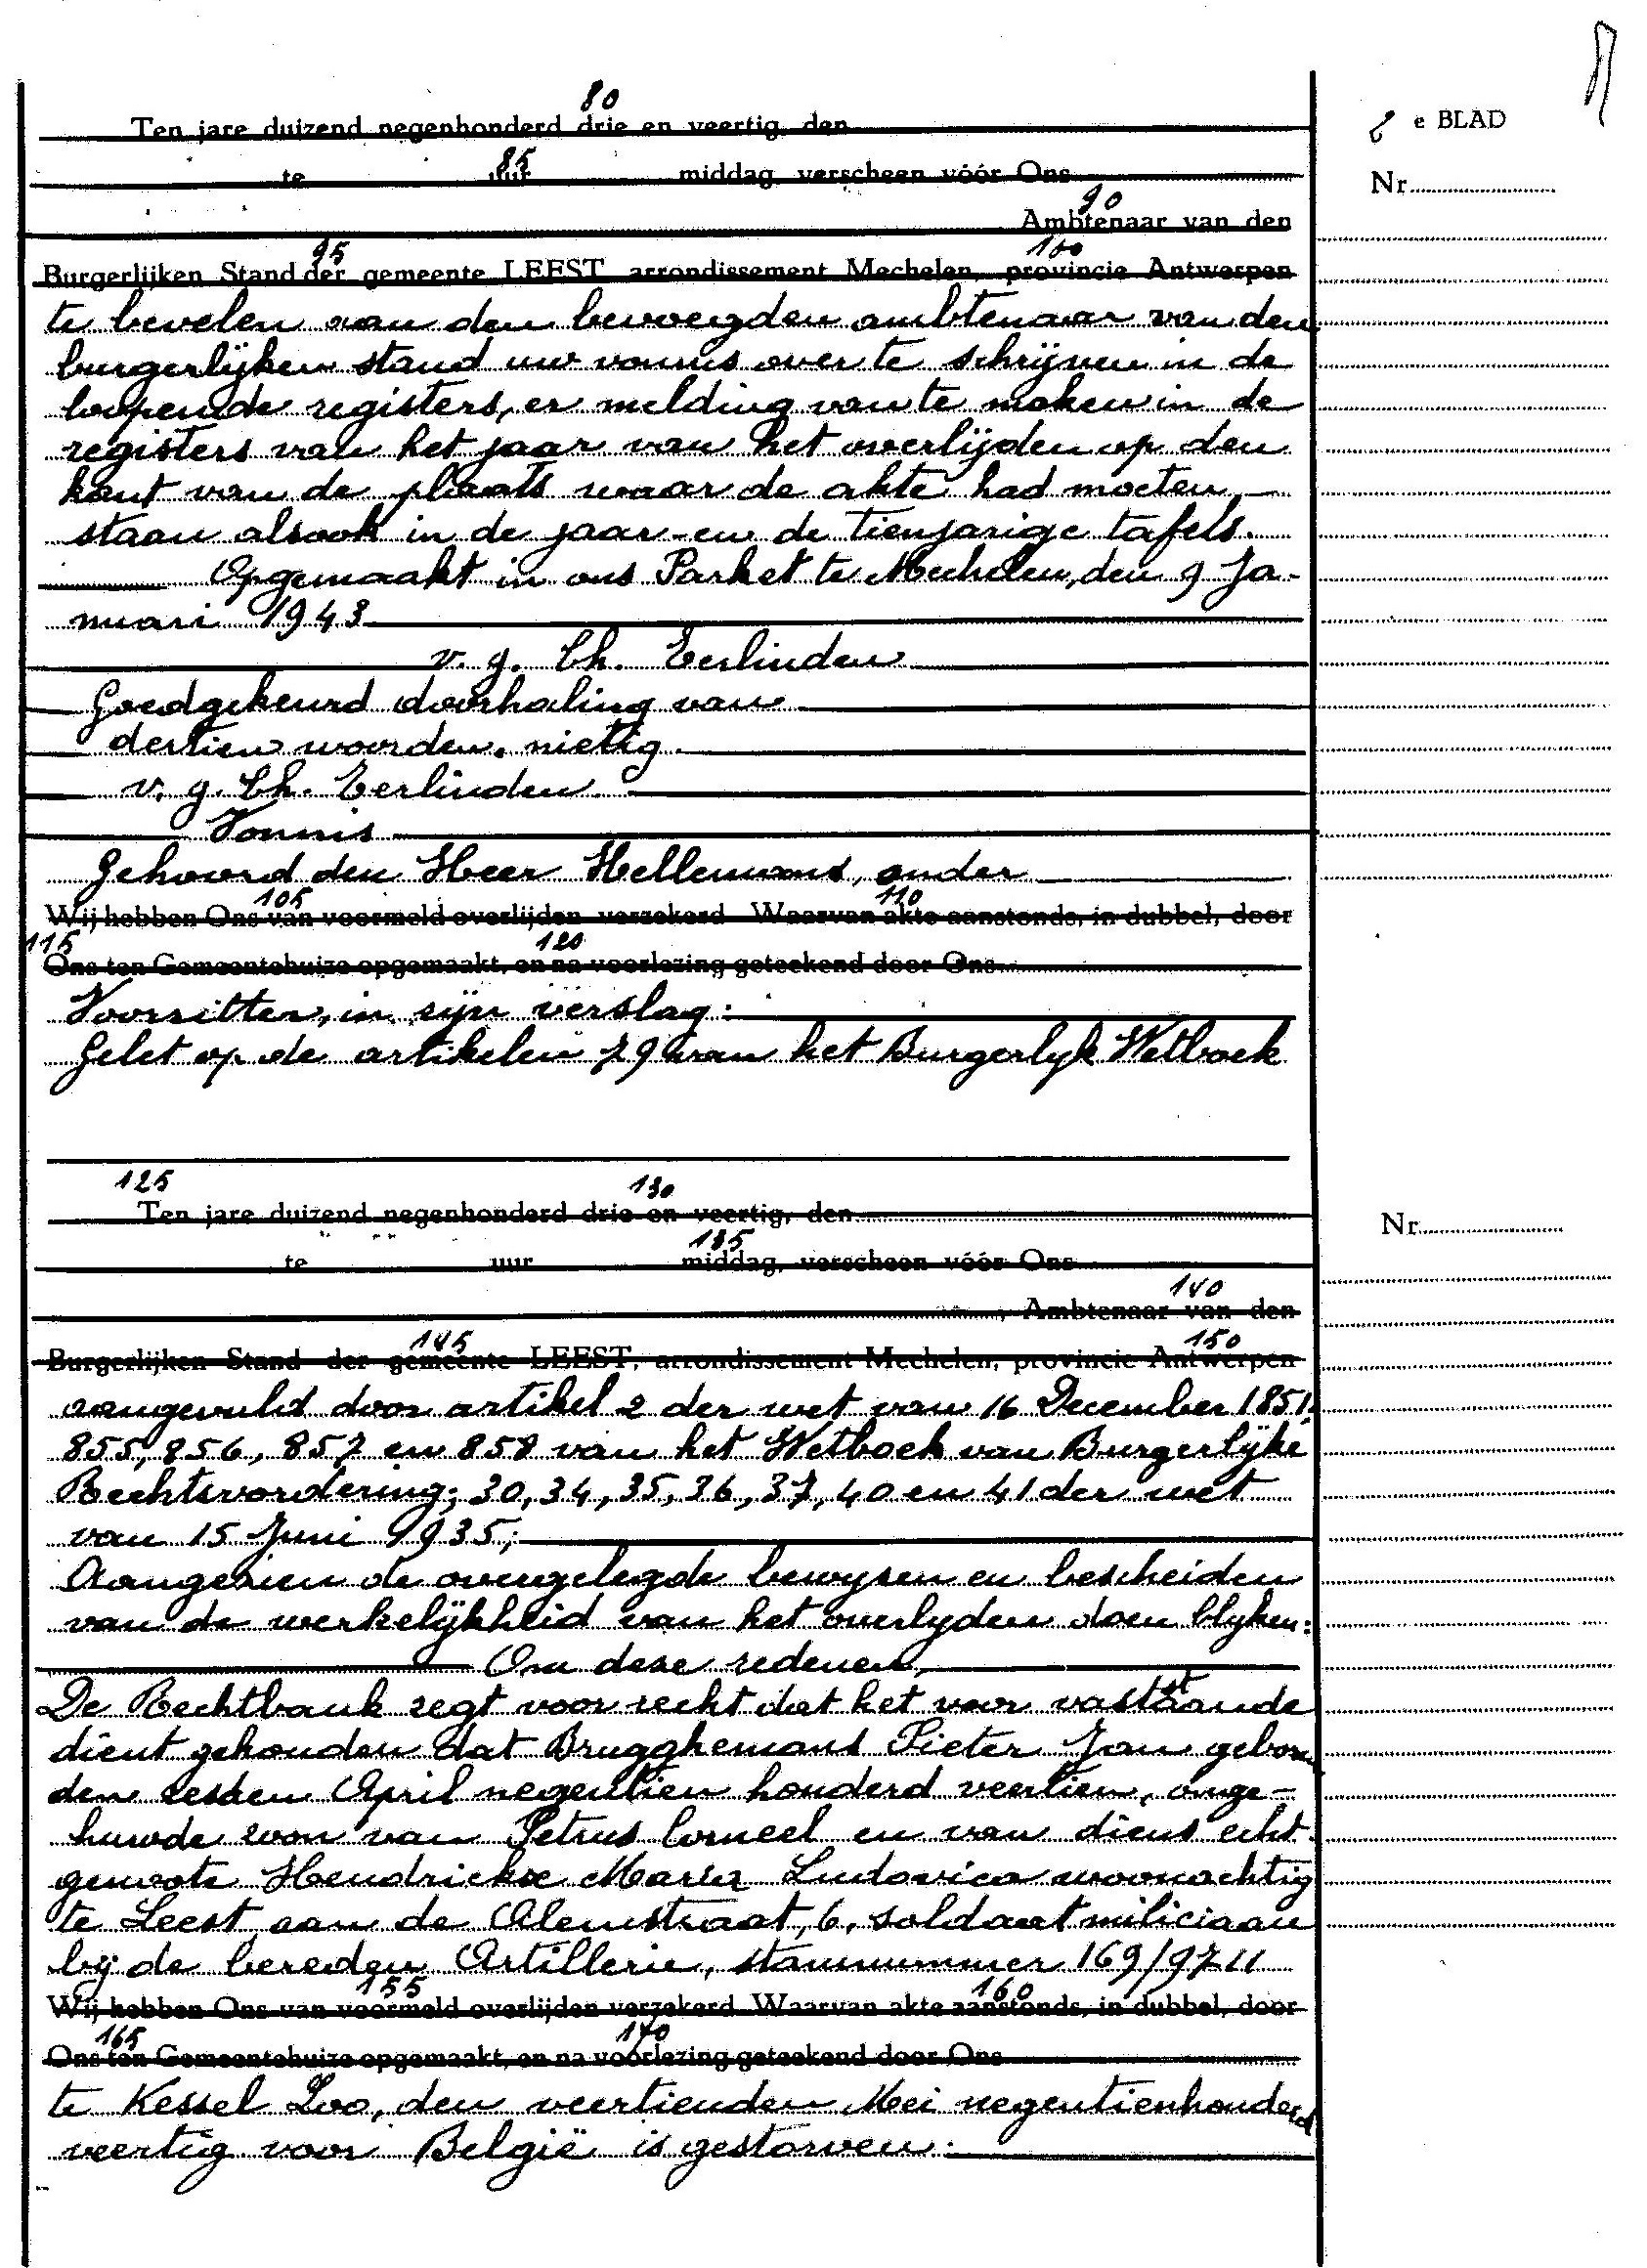 80
Ten jare duizend negenhonderd drie en veertig, den
6 e BLAD
85
te uur middag verscheen vóór Ons
Nr
90
Ambtenaar van den
95 100
Burgerlijken Stand der gemeente LEEST, arrondissement Mechelen, provincie Antwerpen
te bevelen aan den bevoegden ambtenaar van den
burgerlijken stand uw vonnis over te schrijven in de
loopende registers, er melding van te maken in de
registers van het jaar van het overlijden op den
kant van de plaats waar de akte had moeten
staan alsook in de jaar- en de tienjarige tafels.
Opgemaakt in ons Parket te Mechelen, den 9 Ja-
nuari 1943
v. g. Ch. Eerlinden
Goedgekeurd doorhaling van
dertien woorden. nietig.
v. g. Ch. Eerlinden
Vonnis
Gehoord den Heer Hellemans, onder
105 110
Wij hebben Ons van voormeld overlijden verzekerd Waarvan akte aanstonds, in dubbel, door
115 120
Ons ten Gemeentehuize opgemaakt, en na voorlezing geteekend door Ons
Voorzitter, in zijn verslag:
Gelet op de artikelen 79 van het Burgerlyk Wetboek
125 130
Ten jare duizend negenhonderd drie en veertig, den
Nr
135
te uur middag, verscheen vóór Ons
140
, Ambtenaar van den
145 150
Burgerlijken Stand der gemeente LEEST, arrondissement Mechelen, provincie Antwerpen
aangevuld door artikel 2 der wet van 16 December 1851;
855, 856, 857 en 858 van het Wetboek van Burgerlijke
Rechtsvordering; 30, 34, 35, 36, 37, 40 en 41 der wet
van 15 Juni 1935;
Aangezien de overgelegde bewyzen en bescheiden
van de werkelijkheid van het overlyden doen blyken:
Om deze redenen,
De Rechtbank zegt voor recht dat het voor vaststaande
dient gehouden dat Brugghemans Pieter Jan geboren
den zesden April negentien honderd veertien, onge-
huwde zoon van Petrus Corneel en van diens echt
genoote Hendrickx Maria Ludovica woonachtig
te Leest, aan de Alemstraat, 6, soldaat miliciaan
bij de bereden Artillerie, stamnummer 169/9711
155 160
Wij hebben Ons van voormeld overlijden verzekerd Waarvan akte aanstonds, in dubbel, door
165 170
Ons ten Gemeentehuize opgemaakt, en na voorlezing geteekend door Ons
te Kessel Loo, den veertienden Mei negentienhonderd
veertig voor België is gestorven: